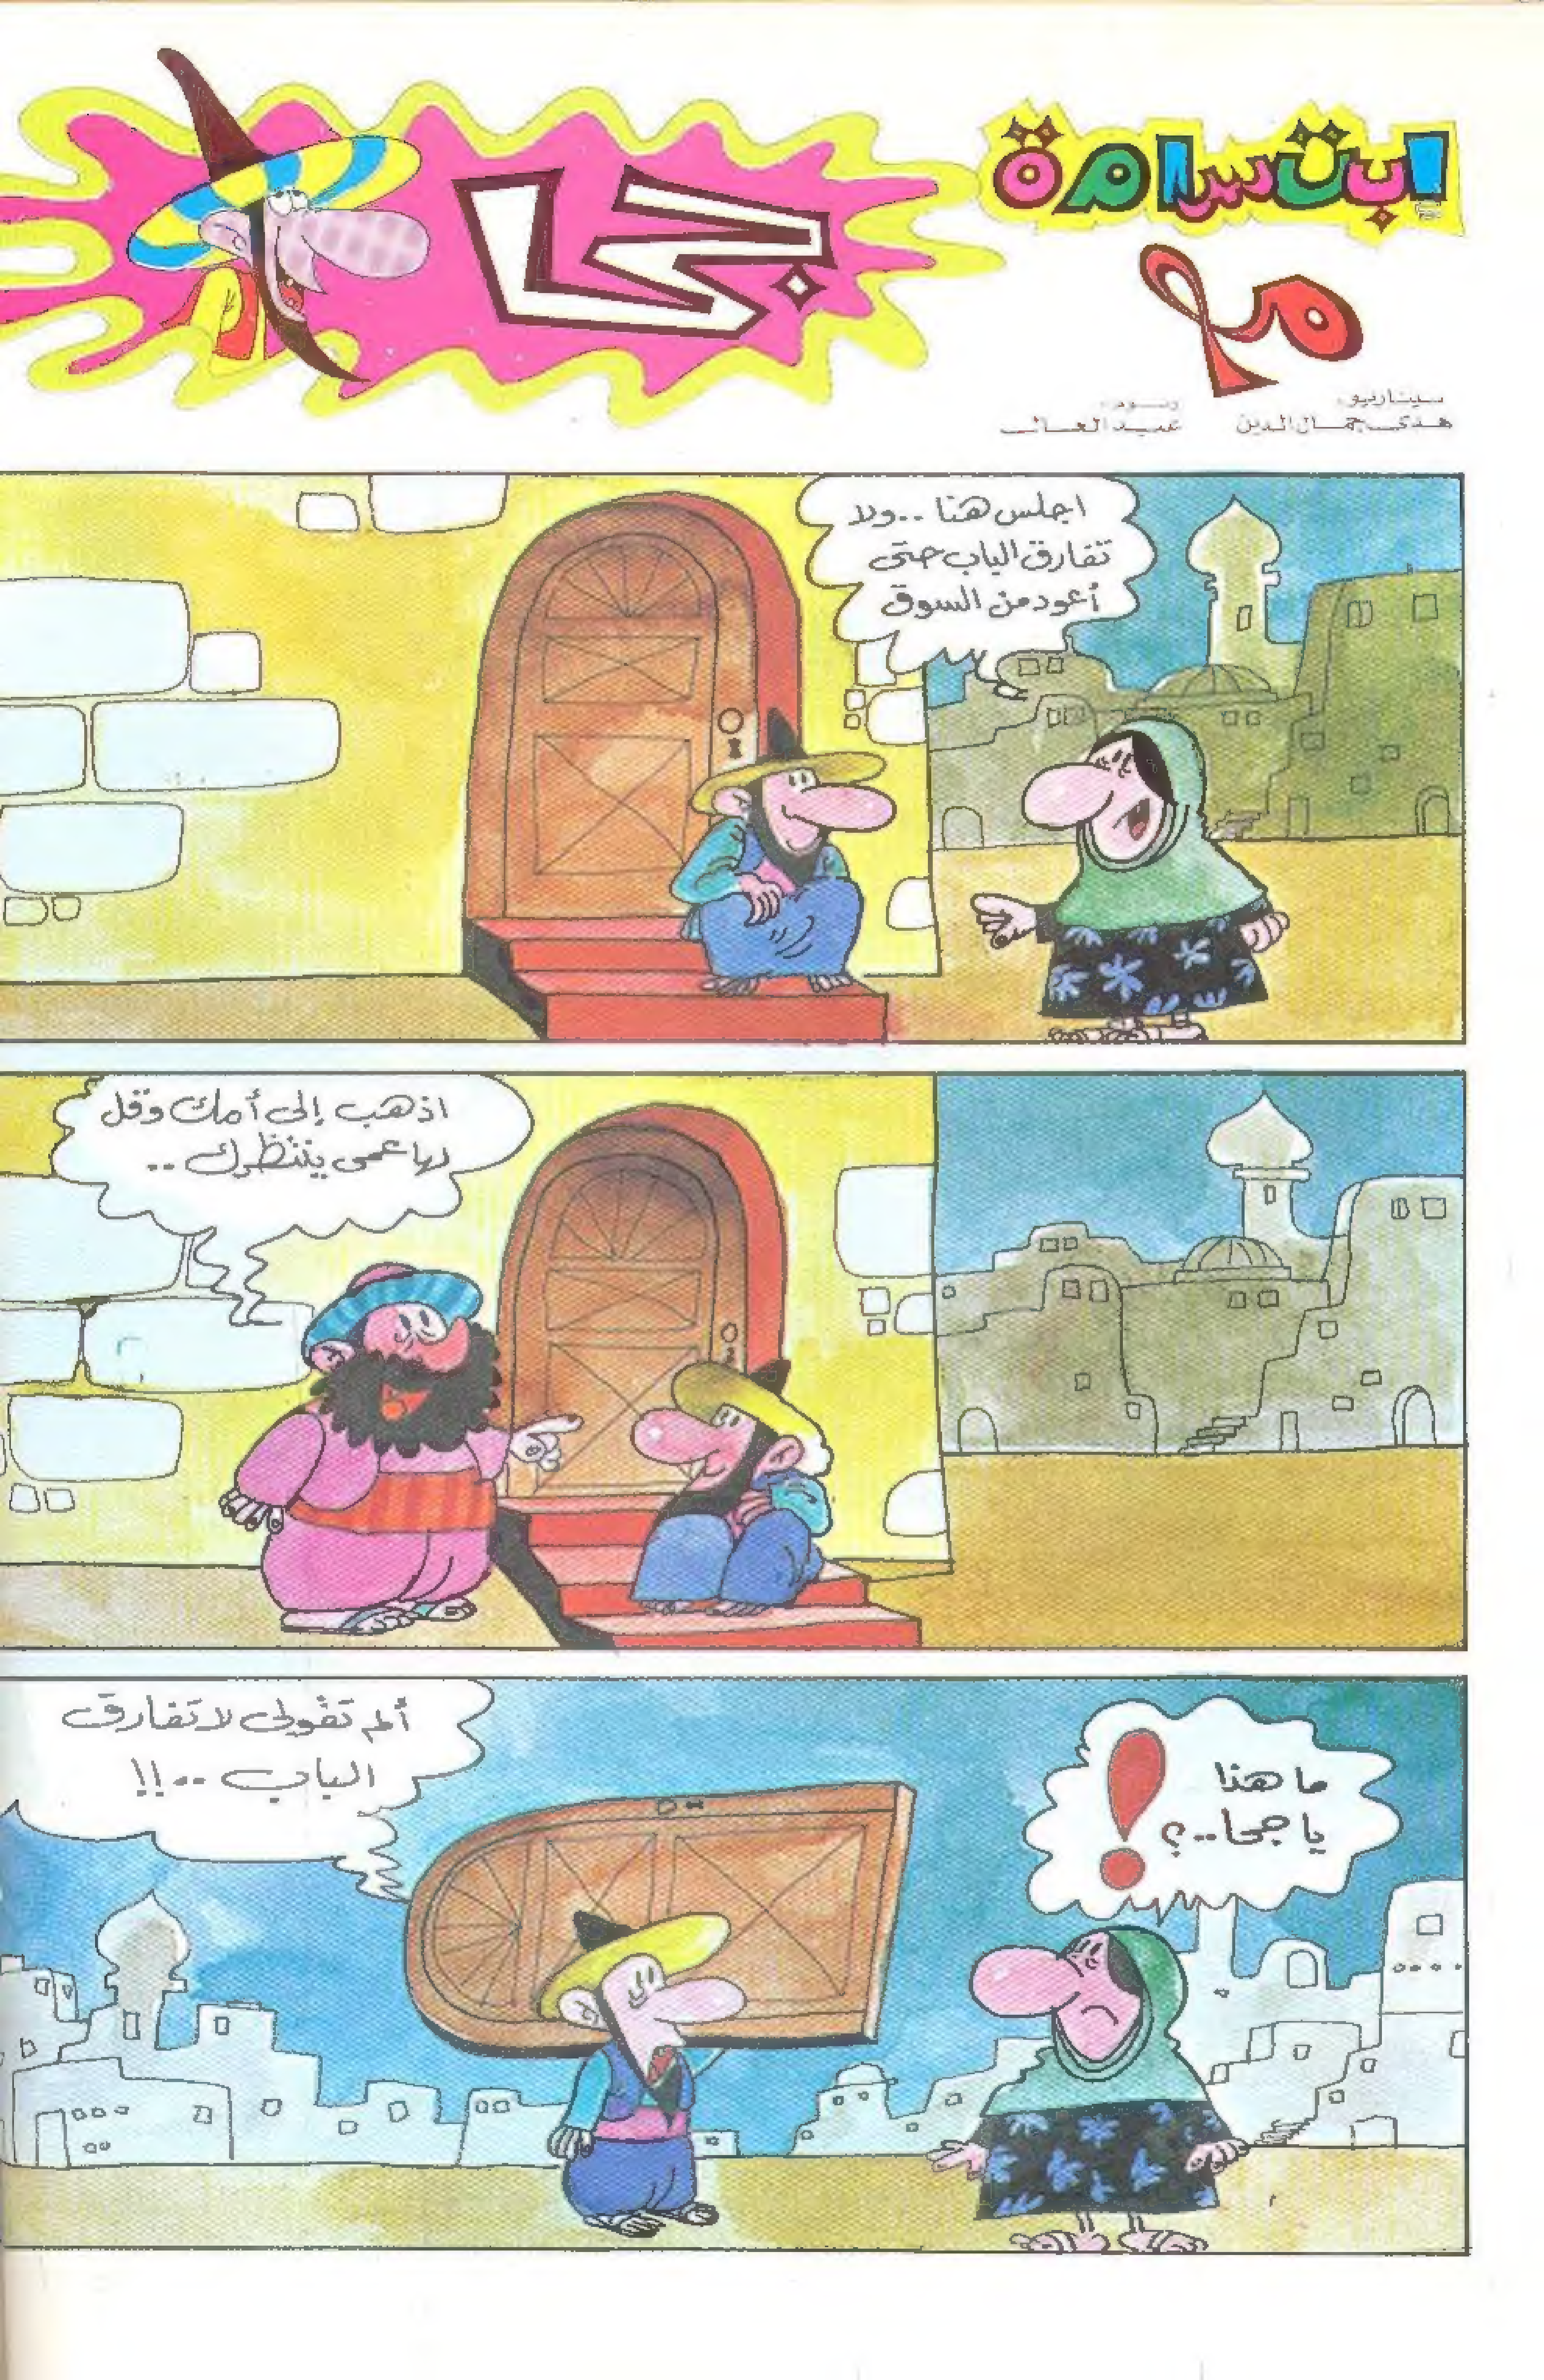 ابتسامة
مع
جحا
سيناريو:
هدى جمال الدين
رسوم:
عبد العال
اجلس هنا ..ولا
تفارق الباب حتى
أعود من السوق
اذهب إلى أمك وقل
لها عمى ينتظرك ..
ما هذا
يا جحا..؟
ألم تقولى لا تفارق
الباب ..!!